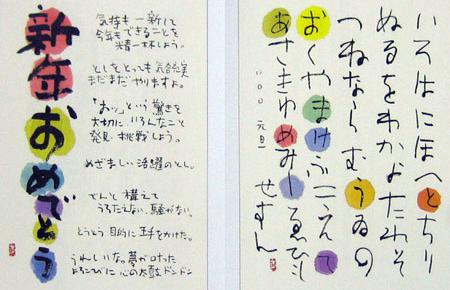 新年おめでとう
気持も一新して
今年もできることを
精一杯しよう。
としをとっても気合充実
まだまだやりますよ。
「おッ」という驚きを
大切にいろんなこと
発見・挑戦しよう。
めざましい活躍のとし。
でんと構えて
うろたえない、騒がない。
とうとう目的に王手をかけた。
うれしいな。夢が叶った
よろこびに心の太鼓ドンドン
いろはにほへとちり
ぬるをわかよたれそ
つねならむうゐの
おくやまけふこえて
あさきゆめみしゑひも
せすん
二〇〇〇 元旦